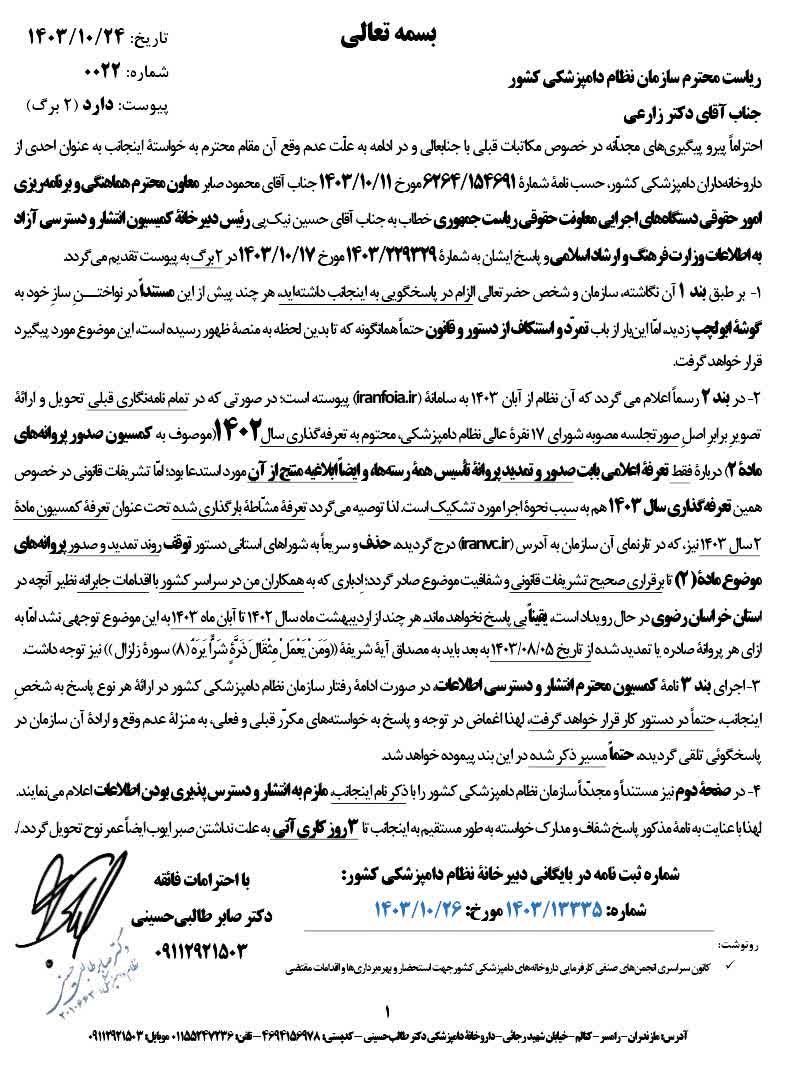 بسمه تعالی
تاریخ: ۱۴۰۳/۱۰/۲۴
شماره: ۰۰۲۲
پیوست: دارد (۲ برگ)
ریاست محترم سازمان نظام دامپزشکی کشور
جناب آقای دکتر زارعی
احتراماً پیرو پیگیری‌های مجدّانه در خصوص مکاتبات قبلی با جنابعالی و در ادامه به علّت عدم وقع آن مقام محترم به خواستهٔ اینجانب به عنوان احدی از
داروخانه‌داران دامپزشکی کشور، حسب نامهٔ شمارهٔ ۶۲۶۴/۱۵۴۶۹۱ مورخ ۱۴۰۳/۱۰/۱۱ جناب آقای محمود صابر معاون محترم هماهنگی و برنامه‌ریزی
امور حقوقی دستگاه‌های اجرایی معاونت حقوقی ریاست جمهوری خطاب به جناب آقای حسین نیک‌پی رئیس دبیرخانهٔ کمیسیون انتشار و دسترسی آزاد
به اطلاعات وزارت فرهنگ و ارشاد اسلامی و پاسخ ایشان به شمارهٔ ۱۴۰۳/۲۲۹۳۲۹ مورخ ۱۴۰۳/۱۰/۱۷ در ۲ برگ به پیوست تقدیم می‌گردد.
۱- بر طبق بند ۱ آن نگاشته، سازمان و شخص حضرتعالی الزام در پاسخگویی به اینجانب داشته‌اید، هر چند پیش از این مستنداً در نواختـــنِ سازِ خود به
گوشهٔ ابولچپ زدید، امّا این‌بار از باب تمرّد و استنکاف از دستور و قانون حتماً همانگونه که تا بدین لحظه به منصهٔ ظهور رسیده است، این موضوع مورد پیگیرد
قرار خواهد گرفت.
۲- در بند ۲ رسماً اعلام می گردد که آن نظام از آبان ۱۴۰۳ به سامانهٔ (iranfoia.ir) پیوسته است؛ در صورتی که در تمام نامه‌نگاری قبلی تحویل و ارائهٔ
تصویر برابرِ اصلِ صورتجلسه مصوبه شورای ۱۷ نفرهٔ عالی نظام دامپزشکی، محتوم به تعرفه‌گذاری سال ۱۴۰۲ (موصوف به کمسیون صدور پروانه‌های
مادهٔ ۲) دربارهٔ فقط تعرفهٔ اعلامی بابت صدور و تمدید پروانهٔ تأسیس همهٔ رسته‌ها، و ایضاً ابلاغیه منتج از آن مورد استدعا بود؛ امّا تشریفات قانونی در خصوص
همین تعرفه‌گذاری سال ۱۴۰۳ هم به سبب نحوهٔ اجرا مورد تشکیک است. لذا توصیه می‌گردد تعرفهٔ مشّاطهٔ بارگذاری شده تحت عنوان تعرفهٔ کمسیون مادهٔ
۲ سال ۱۴۰۳ نیز، که در تارنمای آن سازمان به آدرس (iranvc.ir) درج گردیده، حذف و سریعاً به شوراهای استانی دستور توقف روند تمدید و صدور پروانه‌های
موضوع مادهٔ (۲) تا برقراری صحیح تشریفات قانونی و شفافیت موضوع صادر گردد؛ اِدباری که به همکاران من در سراسر کشور با اقدامات جابرانه نظیر آنچه در
استان خراسان رضوی در حال رویداد است، یقیناً بی پاسخ نخواهد ماند. هر چند از اردیبهشت ماه سال ۱۴۰۲ تا آبان ماه ۱۴۰۳ به این موضوع توجهی نشد امّا به
ازای هر پروانهٔ صادره یا تمدید شده از تاریخ ۱۴۰۳/۰۸/۰۵ به بعد باید به مصداق آیهٔ شریفهٔ ((وَمَنْ یَعْمَلْ مِثْقَالَ ذَرَّةٍ شَرًّا یَرَهُ (۸) سورهٔ زلزال )) نیز توجه داشت.
۳-اجرای بند ۳ نامهٔ کمسیون محترم انتشار و دسترسی اطلاعات، در صورت ادامهٔ رفتار سازمان نظام دامپزشکی کشور در ارائهٔ هر نوع پاسخ به شخصِ
اینجانب، حتماً در دستور کار قرار خواهد گرفت. لهذا اغماض در توجه و پاسخ به خواسته‌های مکرّر قبلی و فعلی، به منزلهٔ عدم وقع و ارادهٔ آن سازمان در
پاسخگوئی تلقی گردیده، حتماً مسیر ذکر شده در این بند پیموده خواهد شد.
۴- در صفحهٔ دوم نیز مستنداً و مجدّداً سازمان نظام دامپزشکی کشور را با ذکر نام اینجانب، ملزم به انتشار و دسترس پذیری بودن اطلاعات اعلام می‌نمایند.
لهذا با عنایت به نامهٔ مذکور پاسخ شفاف و مدارک خواسته به طور مستقیم به اینجانب تا ۳ روز کاری آتی به علت نداشتن صبر ایوب ایضاً عمر نوح تحویل گردد./.
با احترامات فائقه
دکتر صابر طالبی‌حسینی
۰۹۱۱۲۹۲۱۵۰۳
شماره ثبت نامه در بایگانی دبیرخانهٔ نظام دامپزشکی کشور:
شماره: ۱۴۰۳/۱۳۳۳۵ مورخ: ۱۴۰۳/۱۰/۲۶
رونوشت:
✓ کانون سراسری انجمن‌های صنفی کارفرمایی داروخانه‌های دامپزشکی کشور جهت استحضار و بهره‌برداری‌ها و اقدامات مقتضی
۱
آدرس: مازندران – رامسر – کتالم – خیابان شهید رجائی – داروخانهٔ دامپزشکی دکتر طالب‌حسینی – کدپستی: ۴۶۹۴۱۵۶۹۷۸ – تلفن: ۰۱۱۵۵۲۴۷۲۳۶ موبایل: ۰۹۱۱۲۹۲۱۵۰۳